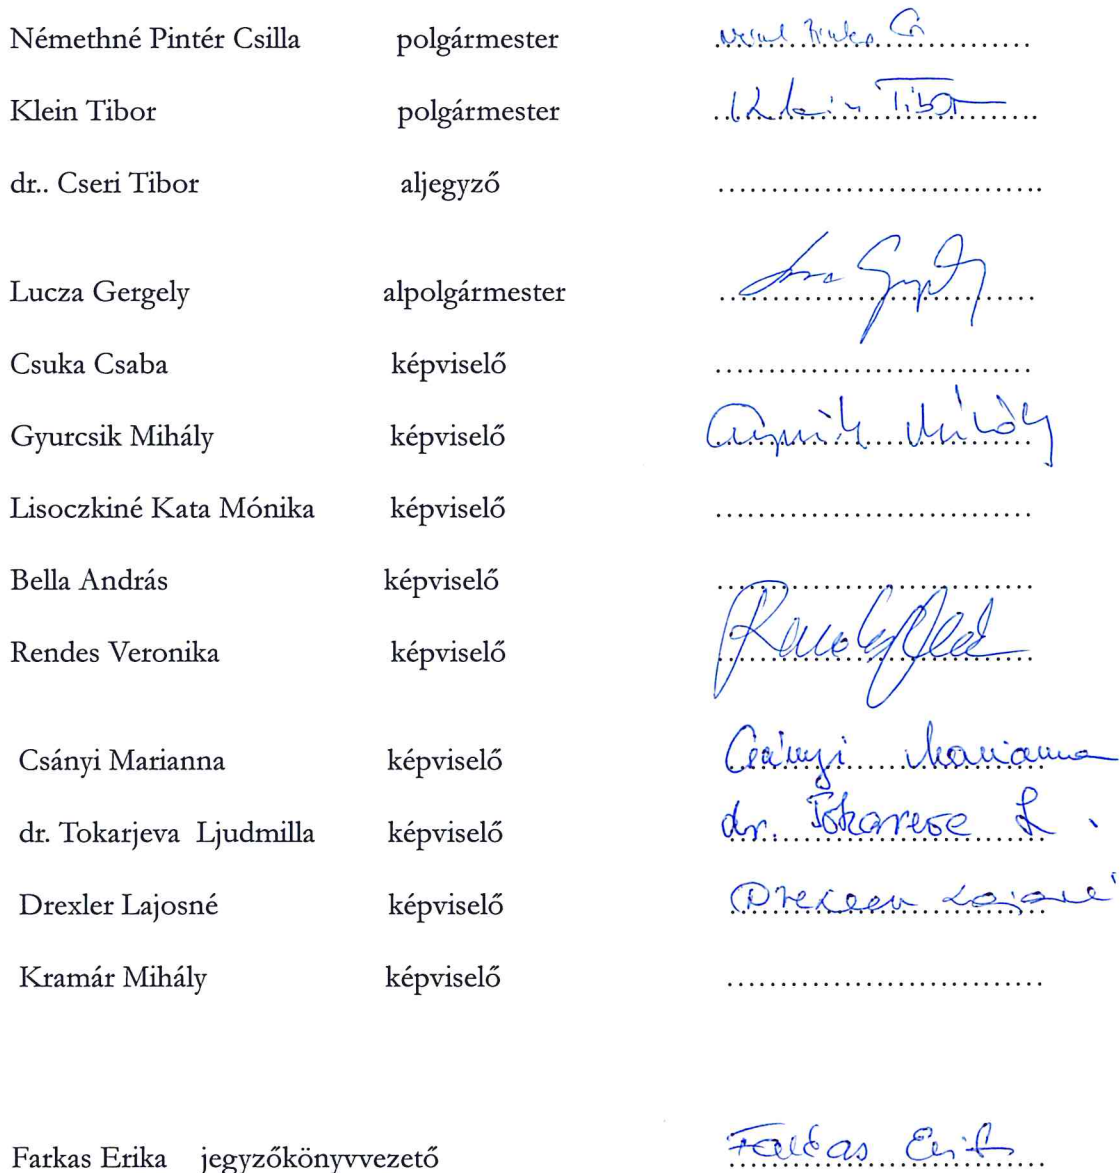 Némethné Pintér Csilla polgármester
Klein Tibor polgármester Klein Tibor
dr.. Cseri Tibor aljegyző ..............................
Lucza Gergely alpolgármester
Csuka Csaba képviselő ..............................
Gyurcsik Mihály képviselő Gyurcsik Mihály
Lisoczkiné Kata Mónika képviselő ..............................
Bella András képviselő ..............................
Rendes Veronika képviselő
Csányi Marianna képviselő Csányi Marianna
dr. Tokarjeva Ljudmilla képviselő dr. L.
Drexler Lajosné képviselő Drexler Lajosné
Kramár Mihály képviselő ..............................
Farkas Erika jegyzőkönyvvezető Farkas Erika